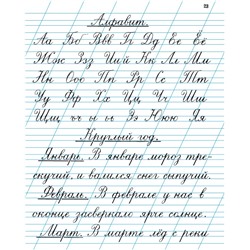 Алфавит.
Аа Бб Ввв Гг Дд Ее Ёё
Жж Ззз Ии Йй Кк Лл Мм
Нн Оо Пп Рр Сс Тт
Уу Фф Хх Цц Чч Шш
Щщ ъ ы ь Ээ Юю Яя
Круглый год.
Январь. В январе мороз тре-
скучий, и валился снег сыпучий.
Февраль. В феврале у нас в
оконце засверкало ярче солнце.
Март. В марте лёд с реки